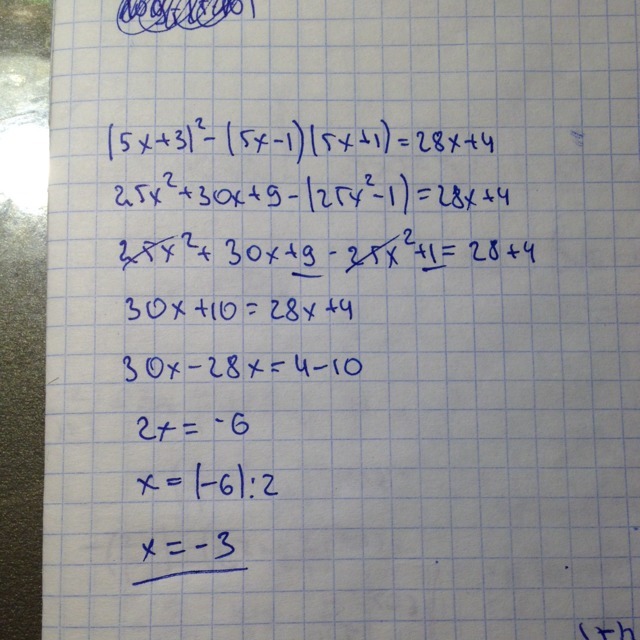 (5x+3)² - (5x-1)(5x+1) = 28x+4
25x²+30x+9-(25x²-1) = 28x+4
25x²+ 30x+9 - 25x²+1 = 28+4
30x+10 = 28x+4
30x-28x = 4-10
2x = -6
x = (-6):2
x = -3